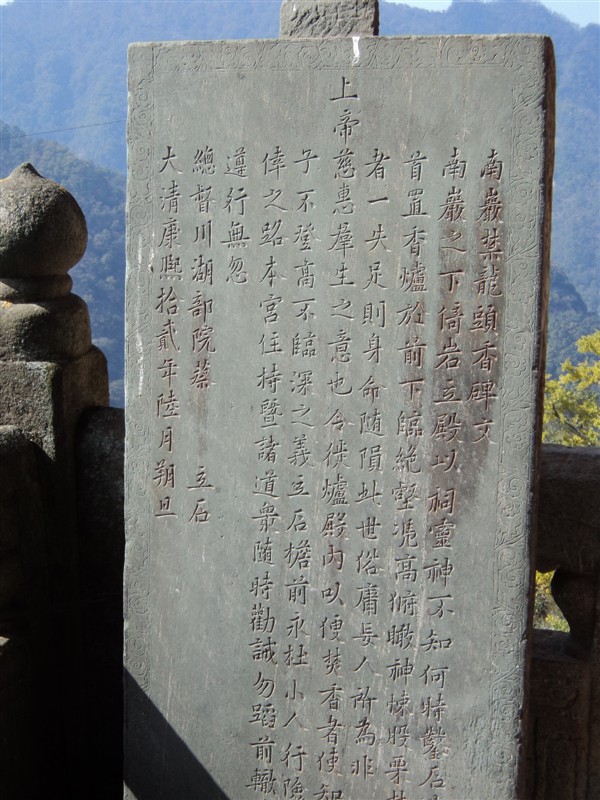 南巖禁龍頭香碑文
南巖之下倚岩立殿以祠靈神不知何時鑿石
首置香爐於前下臨絶壑憑高俯瞰神悚股栗
者一失足則身命隨隕此世俗庸妄人所為非
上帝慈惠羣生之意也今徙爐殿内以便焚香者使知
子不登高不臨深之義立石檐前永杜小人行險
倖之路本宮住持暨諸道衆隨時勸誡勿蹈前轍
遵行無忽
總督川湖部院蔡 立石
大清康熙拾貳年陸月朔旦